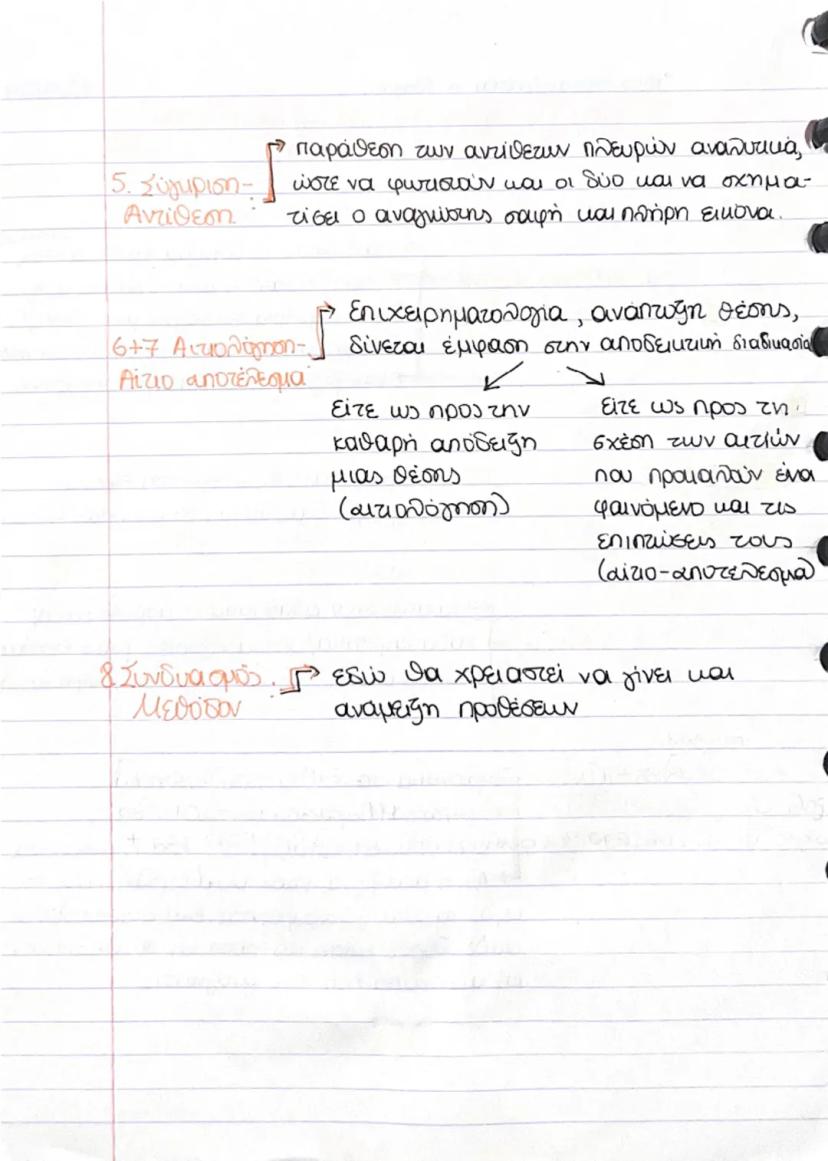 5. Σύγκριση-
Αντίθεση :
παράθεση των αντίθετων πλευρών αναλυτικά,
ώστε να φωτιστούν και οι δύο και να σχημα-
τίσει ο αναγνώστης σαφή και πλήρη εικόνα.
6+7 Αιτιολόγηση-
Αίτιο αποτέλεσμα :
Επιχειρηματολογία, ανάπτυξη θέσης,
δίνεται έμφαση στην αποδεικτική διαδικασία
είτε ως προς την
καθαρή απόδειξη
μιας θέσης
(αιτιολόγηση)
είτε ως προς τη
σχέση των αιτιών
που προκαλούν ένα
φαινόμενο και τις
επιπτώσεις τους
(αίτιο-αποτέλεσμα)
8. Συνδυασμός
Μεθόδων :
εδώ θα χρειαστεί να γίνει και
ανάμειξη προθέσεων